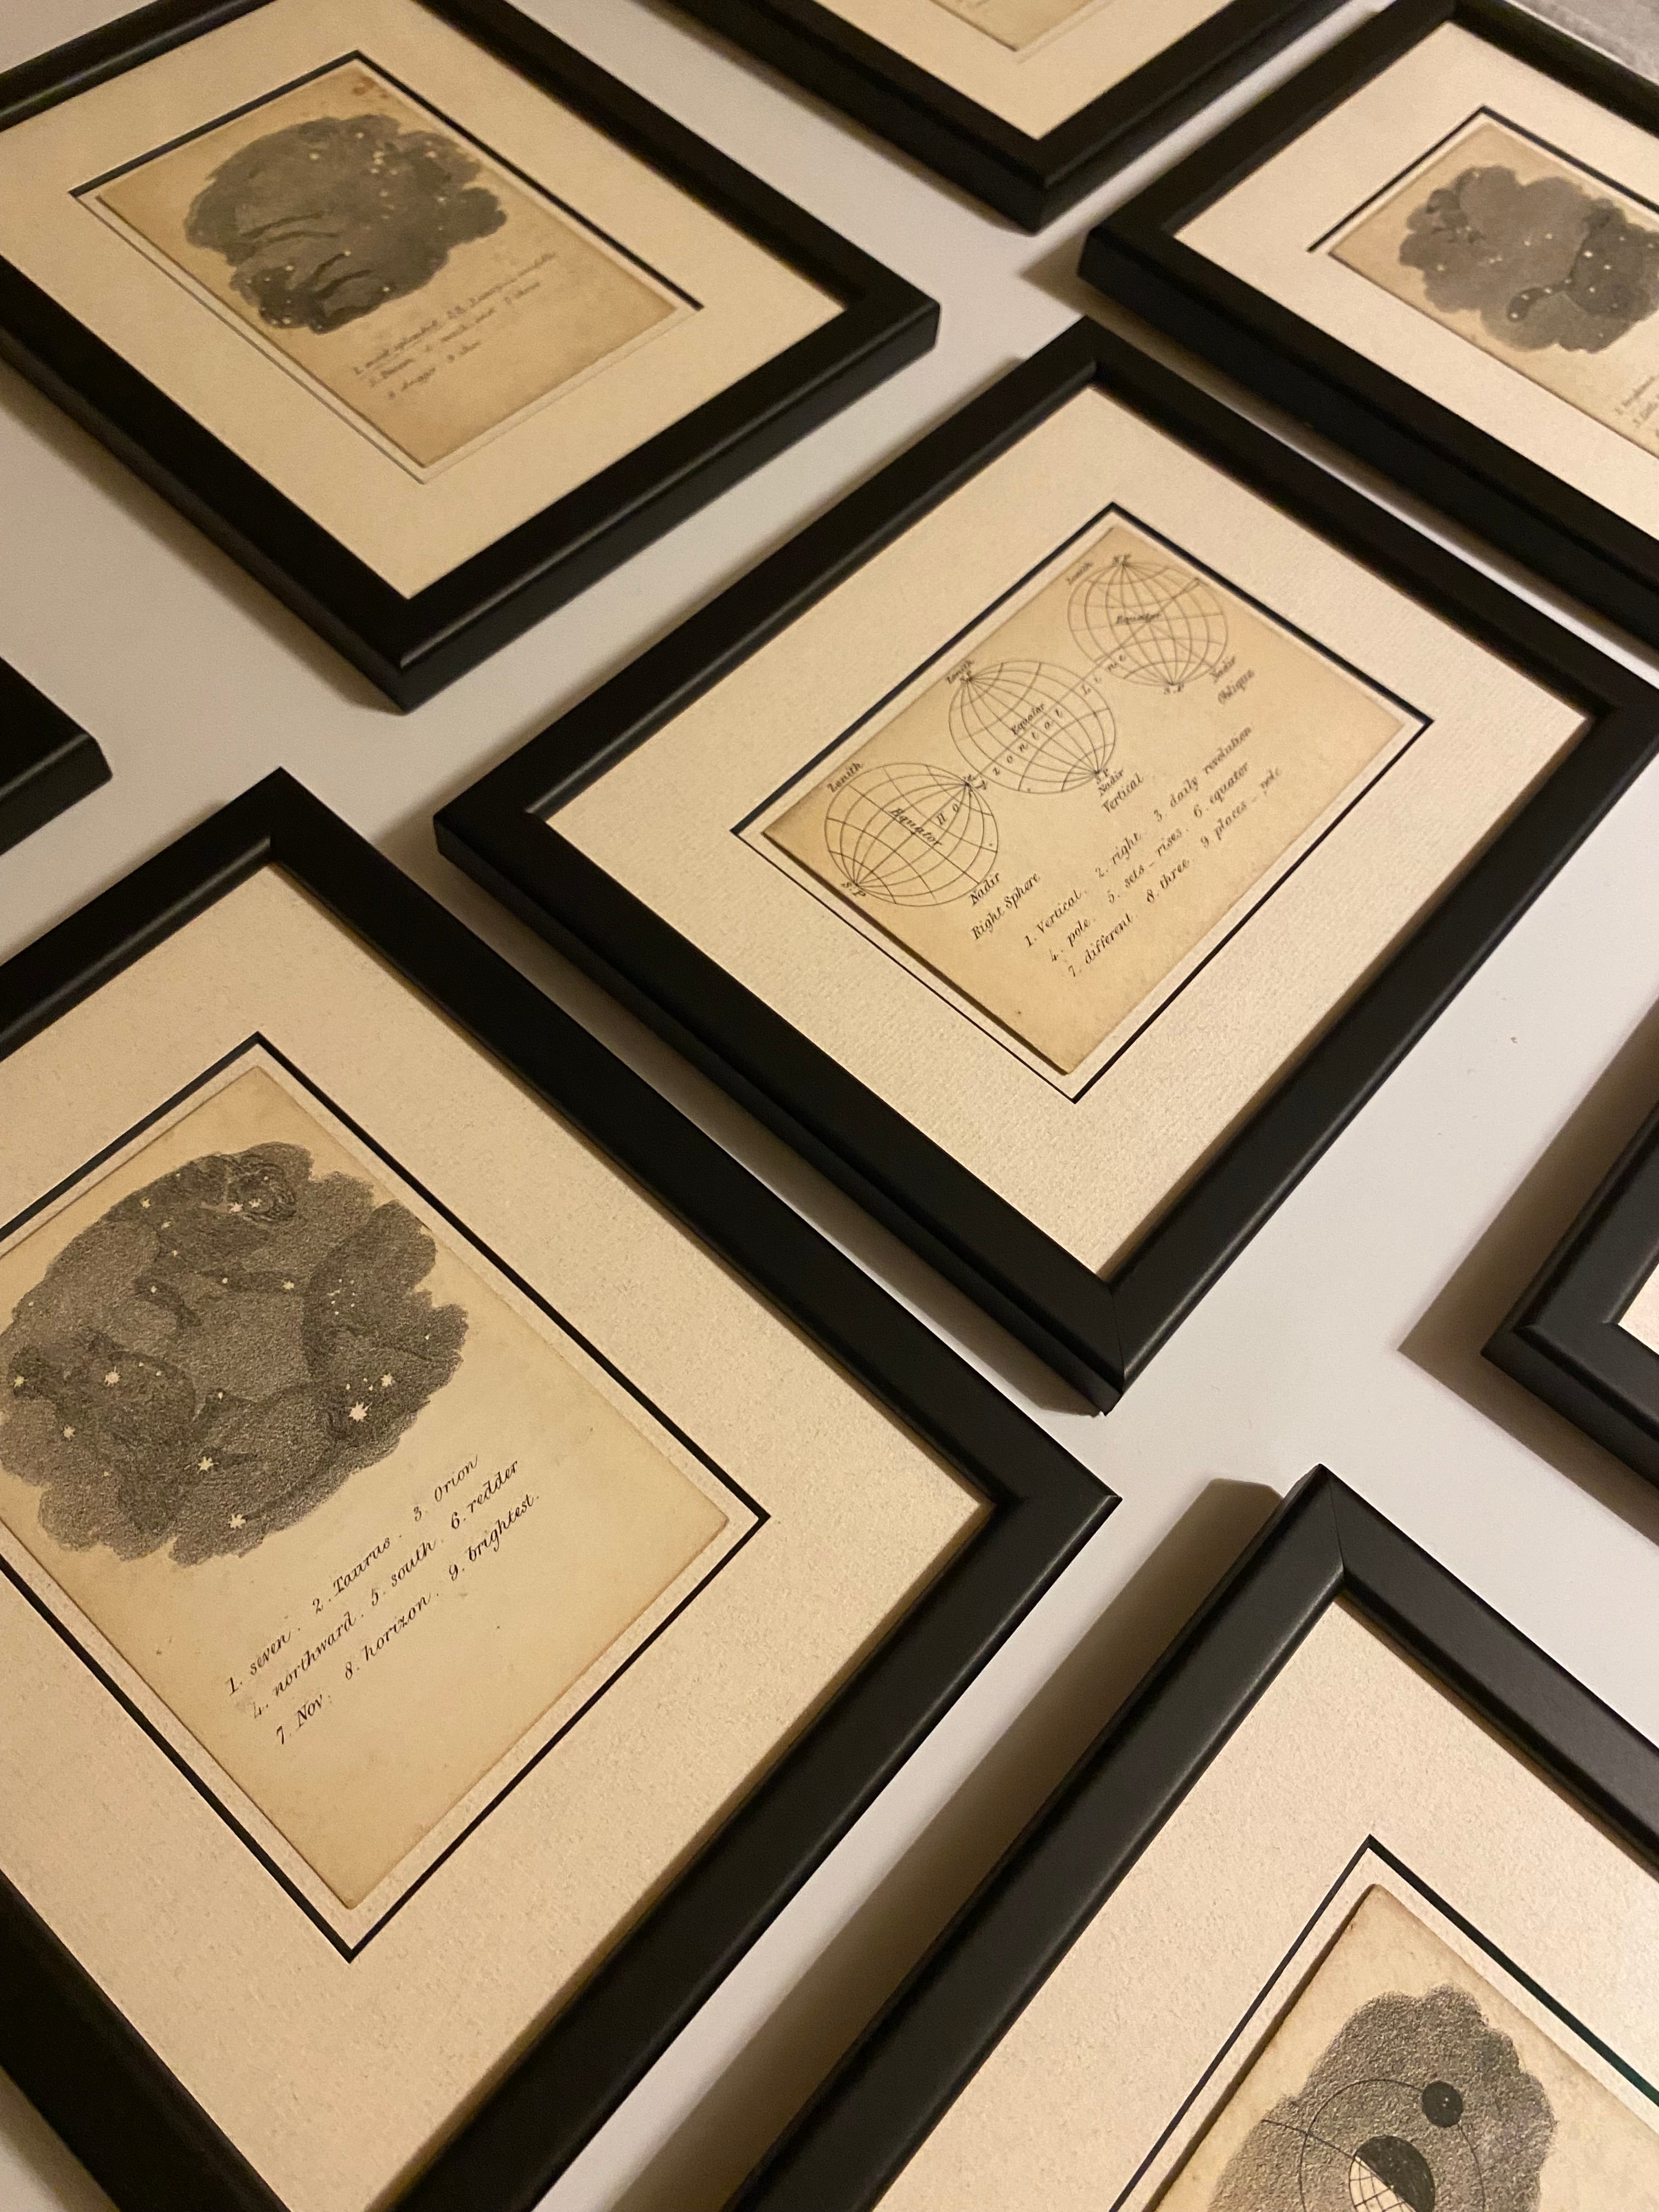 Zenith
N P
Equator
S P
Nadir
Oblique
Zenith
N P
Equator
S P
Nadir
Vertical
Zenith
N P
Equator
S P
Nadir
Right Sphere
Horizontal Line
1. Vertical. 2. right. 3. daily revolution
4. pole. 5. sets - rises. 6. equator
7. different. 8. three. 9 places - pole
1. seven. 2. Taurus. 3. Orion
4. northward. 5. south. 6. redder
7. Nov: 8. horizon. 9. brightest.